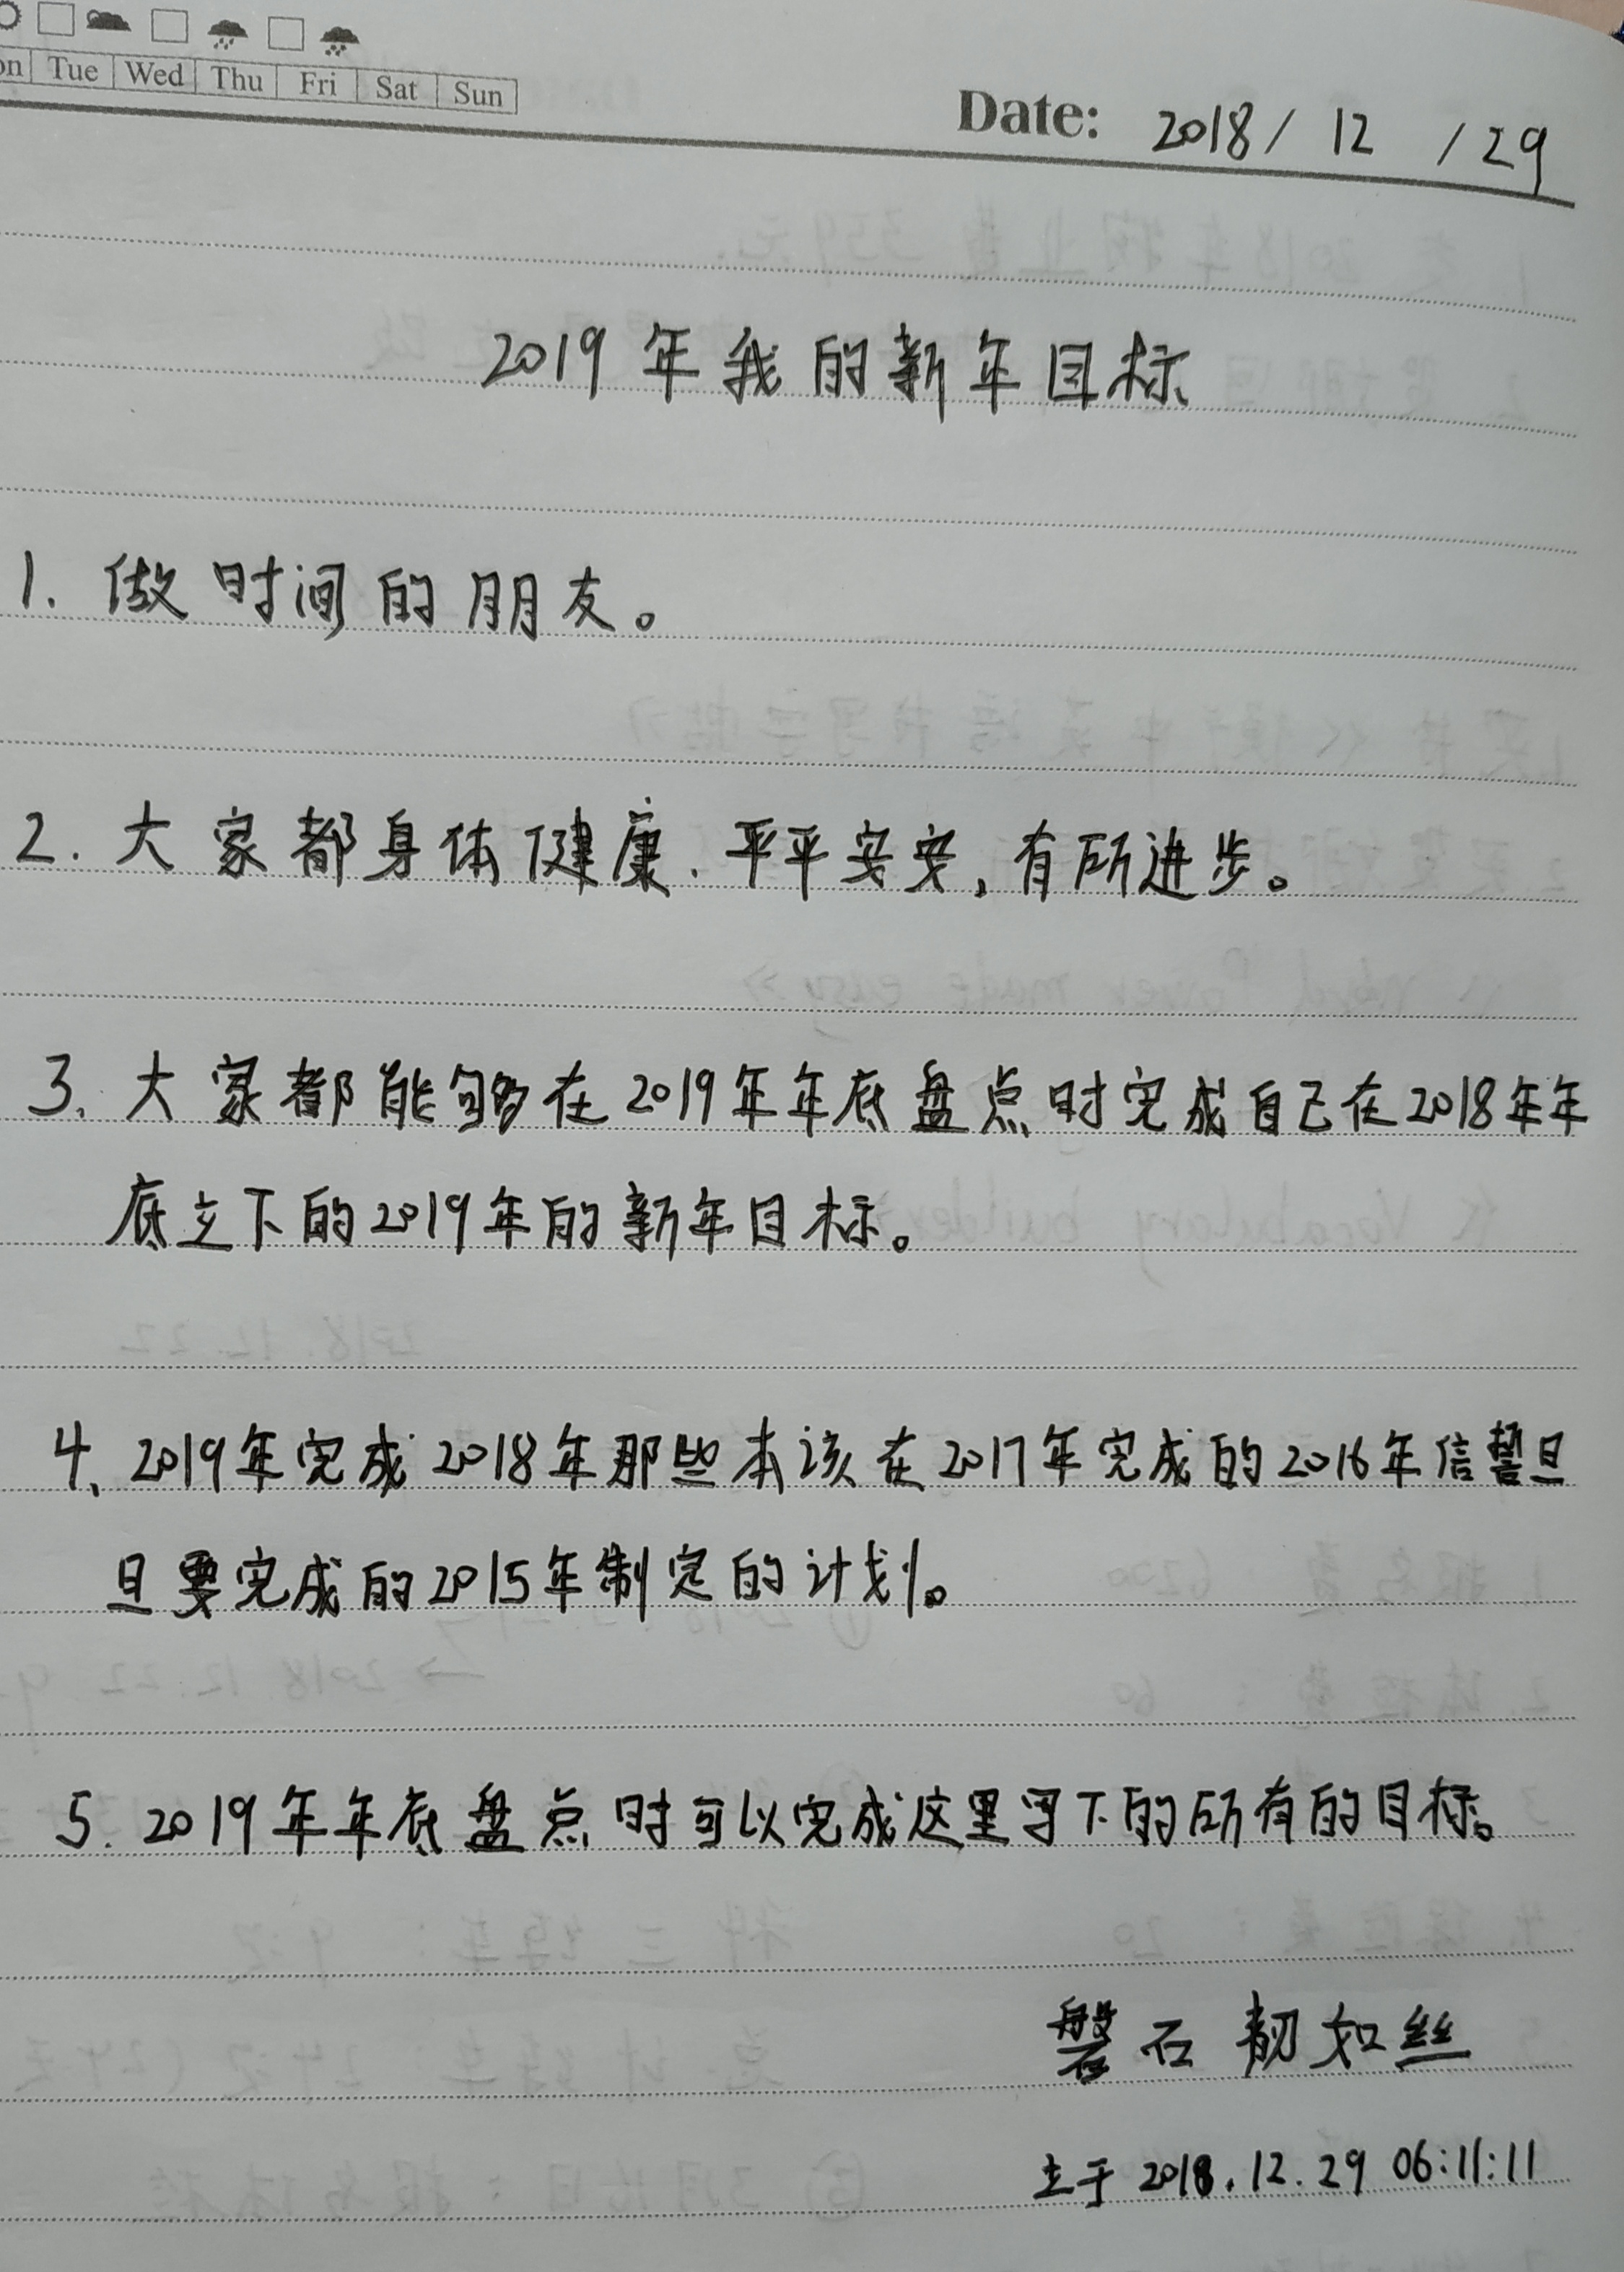 on Tue Wed Thu Fri Sat Sun
Date: 2018/ 12 /29
2019年我的新年目标
1. 做时间的朋友。
2. 大家都身体健康、平平安安,有所进步。
3. 大家都能够在2019年年底盘点时完成自己在2018年年
底立下的2019年的新年目标。
4. 2019年完成2018年那些本该在2017年完成的2016年信誓旦
旦要完成的2015年制定的计划。
5. 2019年年底盘点时可以完成这里写下的所有的目标。
磐石韧如丝
主于 2018.12.29 06:11:11